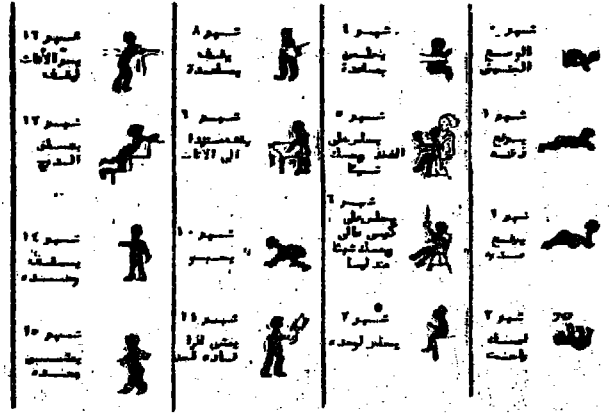 شهر ٠
الوضع
الجنيني
شهر ١
يرفع
ذقنه
شهر ٢
يرفع
صدره
شهر ٣
شهر ٤
يجلس
بمساعدة
شهر ٥
يجلس على
الفخذ ويمسك
شيئا
شهر ٦
يجلس على
كرسي عالي
ويمسك شيئا
شهر ٧
يجلس لوحده
شهر ٨
يقف
بمساعدة
شهر
الى الاثاث
شهر ١٠
يحبو
شهر ١١
يمشي اذا
قاده أحد
شهر ١٢
الاثاث
ليقف
شهر ١٣
يتسلق
الدرج
شهر ١٤
يقف
وحده
شهر ١٥
يمشي
وحده